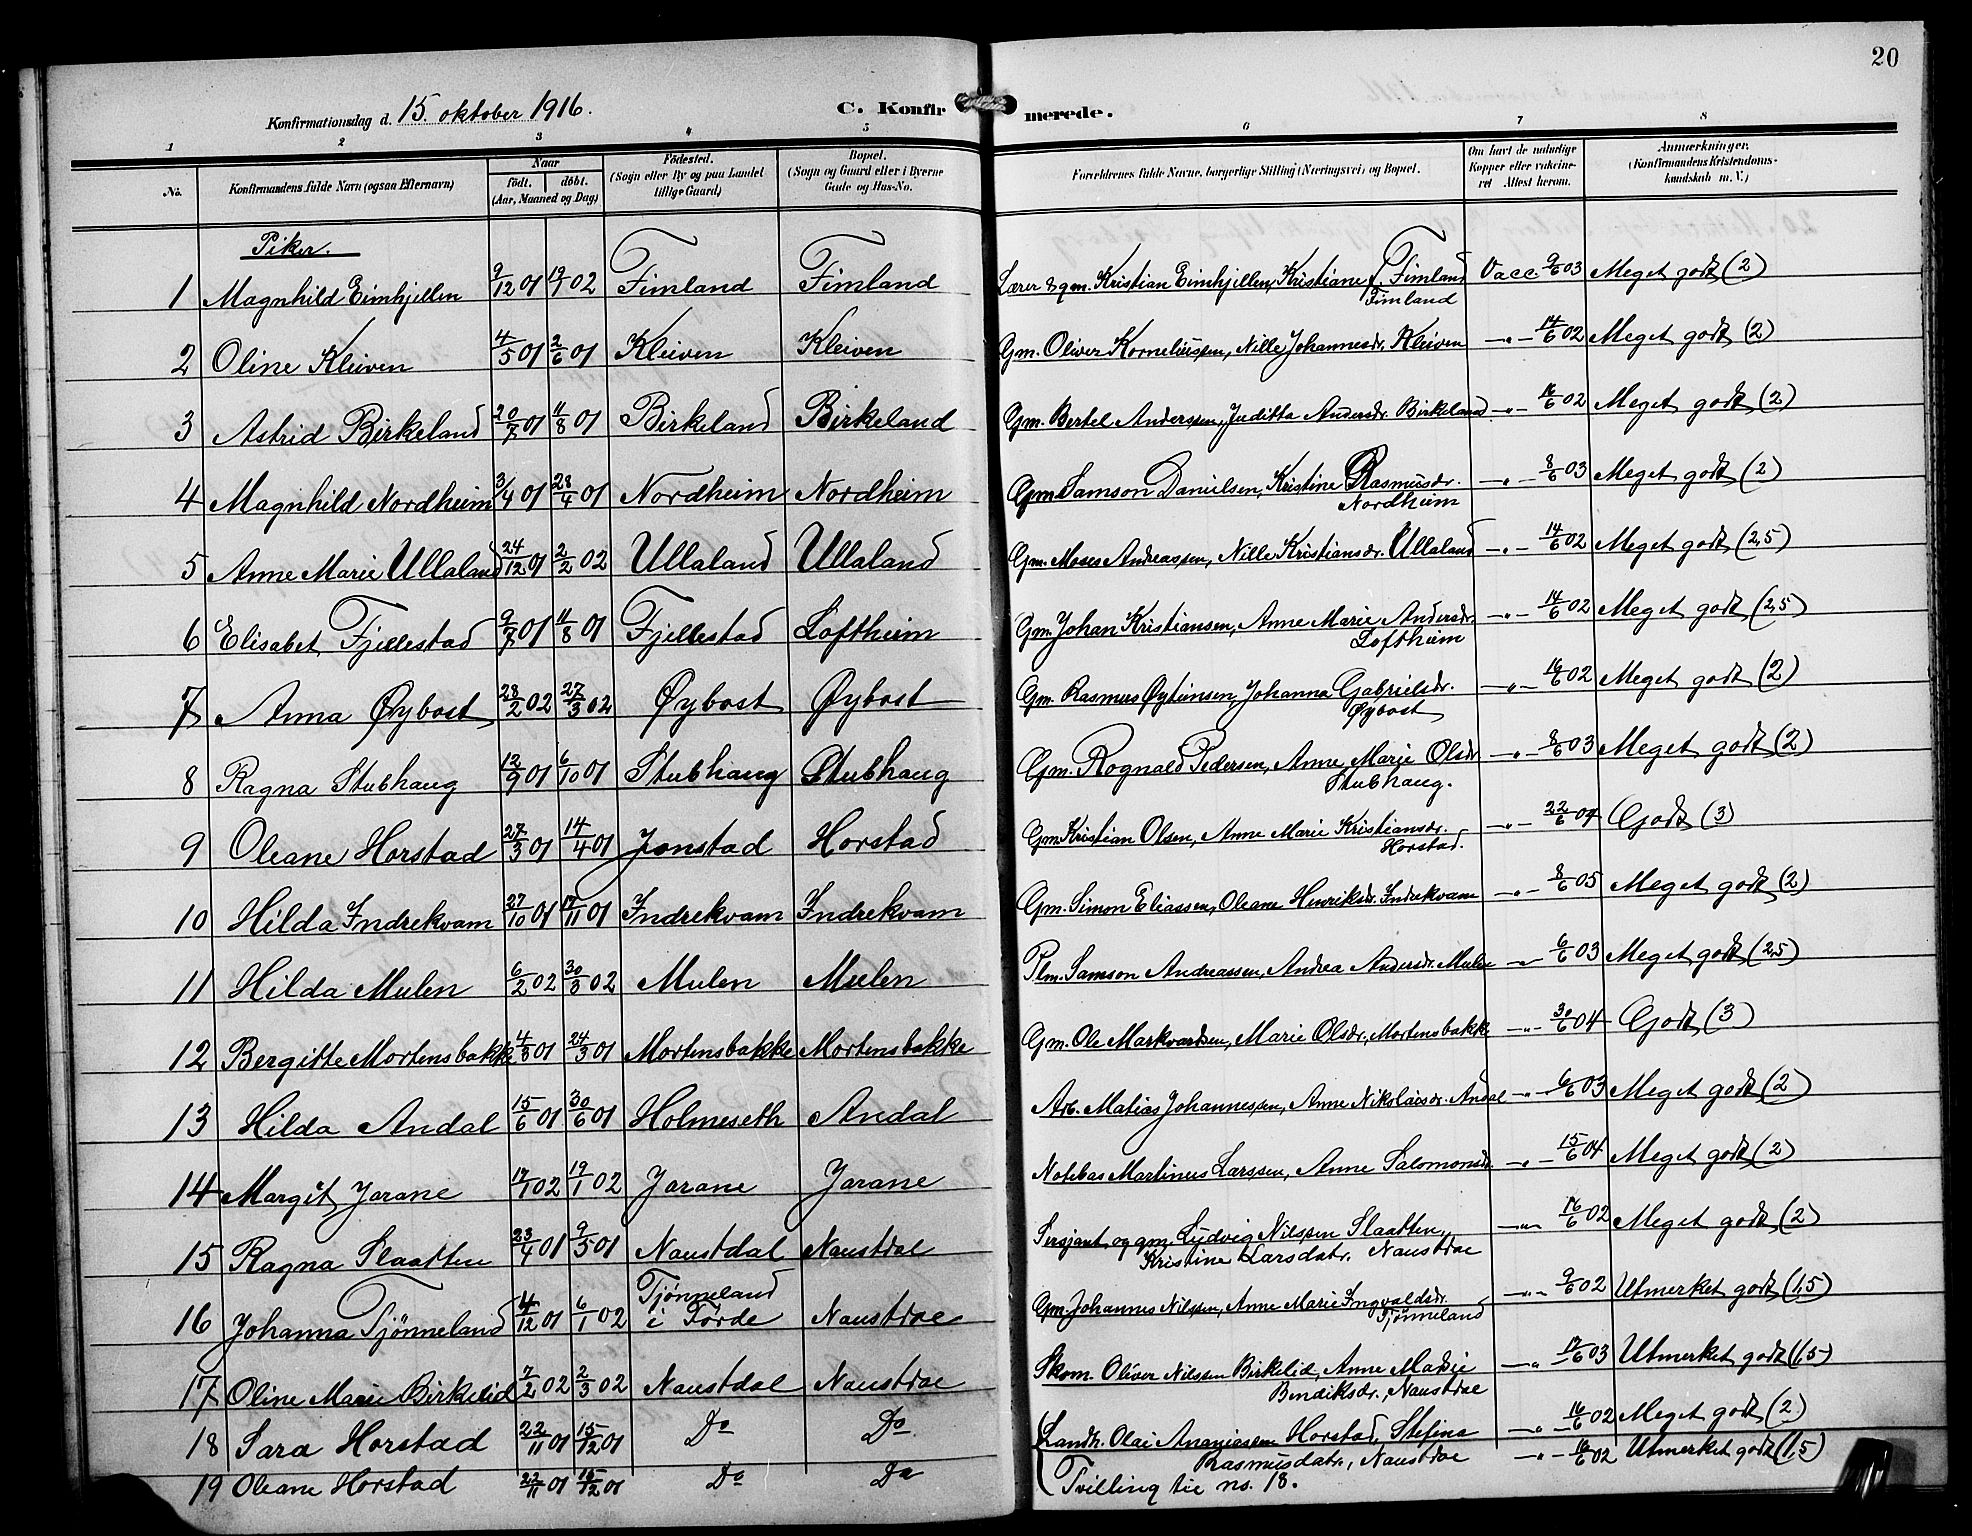 20
Konfirmationsdag d. 15. oktober 1916.
C. Konfirmerede.
1 2 3 4 5 6 7 8
No.
Konfirmandens fulde Navn (ogsaa Efternavn)
Naar
født. døbt.
(Aar, Maaned og Dag)
Fødested.
(Sogn eller By og paa Landet
tillige Gaard)
Bopæl.
(Sogn og Gaard eller i Byerne
Gade og Hus-No.
Forældrenes fulde Navne, borgerlige Stilling (Næringsvei) og Bopæl.
Om havt de naturlige
Kopper eller vaccine-
ret Attest herom.
Anmærkninger.
(Konfirmandens Kristendoms-
kundskab m. V.)
Piker.
1 Magnhild Eimhjellen 9/12 01 19/1 02 Fimland Fimland Lærer & gm. Kristian Eimhjellen, Kristiane f. Fimland Vacc. 9/6 03 Meget godt (2)
Fimland
2 Oline Kleiven 4/5 01 2/6 01 Kleiven Kleiven Gm. Oliver Korneliussen, Nille Johannesdr. Kleiven -"- 14/6 02 Meget godt (2)
3 Astrid Birkeland 20/7 01 11/8 01 Birkeland Birkeland Gm. Bertel Anderssen, Juditta Andersdr. Birkeland -"- 16/6 02 Meget godt (2)
4 Magnhild Nordheim 3/4 01 28/4 01 Nordheim Nordheim Gm. Samson Danielsen, Kristine Rasmusdr. -"- 8/6 03 Meget godt (2)
Nordheim
5 Anne Marie Ullaland 24/12 01 2/2 02 Ullaland Ullaland Gm. Moses Andreassen, Nille Kristiansdr. Ullaland -"- 14/6 02 Meget godt (2,5)
6 Elisabet Fjellestad 9/7 01 11/8 01 Fjellestad Loftheim Gm. Johan Kristiansen, Anne Marie Andersdr. -"- 14/6 02 Meget godt (2,5)
Loftheim
7 Anna Øybost 28/2 02 27/3 02 Øybost Øybost Gm. Rasmus Øyteinsen, Johanna Gabrielsdr. -"- 16/6 02 Meget godt (2)
Øybost
8 Ragna Stubhaug 12/9 01 6/10 01 Stubhaug Stubhaug Gm. Rognald Pedersen, Anne Marie Olsdr. -"- 8/6 03 Meget godt (2)
Stubhaug.
9 Oleane Horstad 27/3 01 14/4 01 Jonstad Horstad Gm Kristian Olsen, Anne Marie Kristiansdr. -"- 22/6 04 Godt (3)
Horstad.
10 Hilda Indrekvam 27/10 01 17/11 01 Indrekvam Indrekvam Gm. Simon Eliassen, Oleane Henriksdr. Indrekvam -"- 8/6 05 Meget godt (2)
11 Hilda Mulen 6/2 02 30/3 02 Mulen Mulen Plm. Samson Andreassen, Andrea Andersdr. Mulen -"- 6/6 03 Meget godt (2,5)
12 Bergitte Mortensbakk 4/3 01 24/3 01 Mortensbakke Mortensbakke Gm. Ole Markvardsen, Marie Olsdr., Mortensbakke -"- 30/6 04 Godt (3)
13 Hilda Andal 15/6 01 30/6 01 Holmeseth Andal Arb. Matias Johannessen, Anne Nikolaisdr. Andal -"- 6/6 03 Meget godt (2)
14 Margit Jarane 17/1 02 19/1 02 Jarane Jarane Notebas Martinus Larssen, Anne Salomonsdr. -"- 15/6 04 Meget godt (2)
15 Ragna Slaatten 23/4 01 9/5 01 Naustdal Naustdal Sersjant og gm. Ludvig Nilssen Slaatten, -"- 16/6 02 Meget godt (2)
Kristine Larsdatr. Naustdal
16 Johanna Tjønneland 4/12 01 6/1 02 Tjønneland i Førde Naustdal Gm. Johannes Nilssen, Anne Marie Ingvaldsdr. -"- 9/6 02 Utmerket godt (1,5)
Tjønneland
17 Oline Marie Birkelid 7/2 02 2/3 02 Naustdal Naustdal Skom. Oliver Nilssen Birkelid, Anne Marie -"- 17/6 03 Utmerket godt (1,5)
Bendiksdr., Naustdal
18 Sara Horstad 22/11 01 15/12 01 Do Do Landh. Olai Ananiassen Horstad, Stefina -"- 16/6 02 Meget godt (2)
Rasmusdatr., Naustdal
19 Oleane Horstad 22/11 01 15/12 01 Do Do Tvilling til no. 18. -"- 16/6 02 Utmerket godt (1,5)